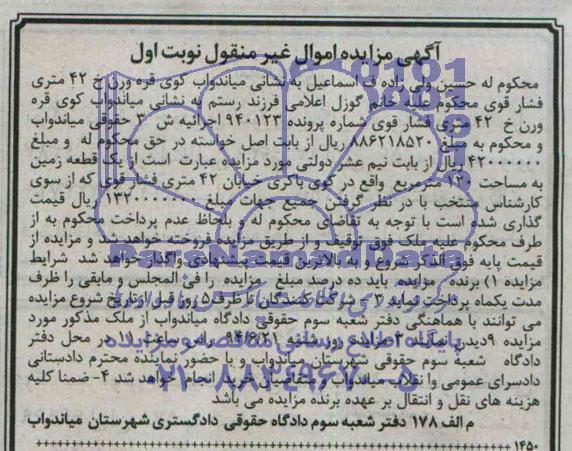 آگهی مزایده اموال غیر منقول نوبت اول
محکوم له حسین ولی زاده ف اسماعیل به نشانی میاندواب کوی قره ورن خ ۴۲ متری
فشار قوی محکوم علیه خانم گوزل اعلامی فرزند رستم به نشانی میاندواب کوی قره
ورن خ ۴۲ متری فشار قوی شماره پرونده ۹۴۰۱۲۳ اجرائیه ش ۳ حقوقی میاندواب
و محکوم به مبلغ ۸۸۶۲۱۸۵۲۰ ریال از بابت اصل خواسته در حق محکوم له و مبلغ
ریال از بابت نیم عشر دولتی مورد مزایده عبارت است از یک قطعه زمین
به مساحت مترمربع واقع در کوی باکری خیابان ۴۲ متری فشار قوی که از سوی
کارشناس منتخب با در نظر گرفتن جمیع جهات مبلغ ریال قیمت
گذاری شده است با توجه به تقاضای محکوم له و بلحاظ عدم پرداخت محکوم به از
طرف محکوم علیه ملک فوق توقیف و از طریق مزایده فروخته خواهد شد و مزایده از
قیمت پایه فوق الذکر شروع و به بالاترین قیمت پیشنهادی واگذار خواهد شد شرایط
مزایده ۱) برنده مزایده باید ده درصد مبلغ مزایده را فی المجلس و مابقی را ظرف
مدت یکماه پرداخت نماید ۲- شرکت کنندگان تا ظرف ۵ روز قبل از تاریخ شروع مزایده
می توانند با هماهنگی دفتر شعبه سوم حقوقی دادگاه میاندواب از ملک مذکور مورد
مزایده دیدن نمایند ۳- مزایده روز راس ساعت در محل دفتر
دادگاه شعبه سوم حقوقی شهرستان میاندواب و با حضور نماینده محترم دادستانی
دادسرای عمومی وانقلاب میاندواب و متقاضیان خرید انجام خواهد شد ۴- ضمنا کلیه
هزینه های نقل و انتقال بر عهده برنده مزایده می باشد
م الف ۱۷۸ دفتر شعبه سوم دادگاه حقوقی دادگستری شهرستان میاندواب
۱۴۵۰
ParsNamadData
پایگاه اطلاع رسانی مناقصه و مزایده
۰۲۱-۸۸۳۴۹۶۷۰-۵